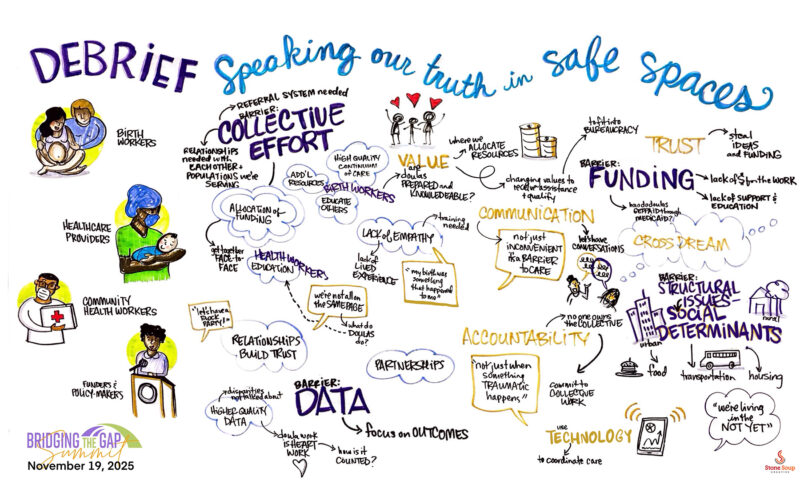 DEBRIEF Speaking our truth in safe spaces
BIRTH
WORKERS
HEALTHCARE
PROVIDERS
COMMUNITY
HEALTH WORKERS
FUNDERS &
POLICY-MAKERS
BRIDGING THE GAP
Summit
November 19, 2025
REFERRAL SYSTEM needed
BARRIER:
COLLECTIVE
EFFORT
RELATIONSHIPS
needed with
EACH OTHER +
POPULATIONS we're
SERVING
ALLOCATION of
FUNDING
get together
FACE-TO-
FACE
ADD'L
RESOURCES
HIGH QUALITY
CONTINUUM
of CARE
BIRTH WORKERS
EDUCATE
OTHERS
HEALTH WORKERS
EDUCATION
"let's have a
BLOCK
PARTY!"
we're not all on
the SAME PAGE
what do
DOULAS
do?
RELATIONSHIPS
BUILD TRUST
LACK of EMPATHY
training
needed
lack of
LIVED
EXPERIENCE
"my birth was
something
that happened
to me"
VALUE
are
doulas
PREPARED and
KNOWLEDGEABLE?
where we
ALLOCATE
RESOURCES
changing values to
receive assistance
+ quality
to fit into
BUREAUCRACY
TRUST
steal
IDEAS
and FUNDING
BARRIER:
FUNDING
lack of $ for the WORK
lack of SUPPORT &
EDUCATION
how do doulas
GET PAID through
MEDICAID?
CROSS DREAM
COMMUNICATION
not just
INCONVENIENT
it's a BARRIER
to CARE
let's have
CONVERSATIONS
BARRIER:
STRUCTURAL
ISSUES-
SOCIAL
DETERMINANTS
urban
rural
food
transportation
housing
"we're living
in the
NOT YET"
ACCOUNTABILITY
no one owns
the COLLECTIVE
"not just when
something
TRAUMATIC
happens"
commit to
COLLECTIVE
WORK
PARTNERSHIPS
BARRIER:
DATA
disparities
not talked about
HIGHER QUALITY
DATA
doula work
IS HEART
WORK
how is it
COUNTED?
focus on OUTCOMES
use
TECHNOLOGY
to coordinate care
Stone Soup
CREATIVE